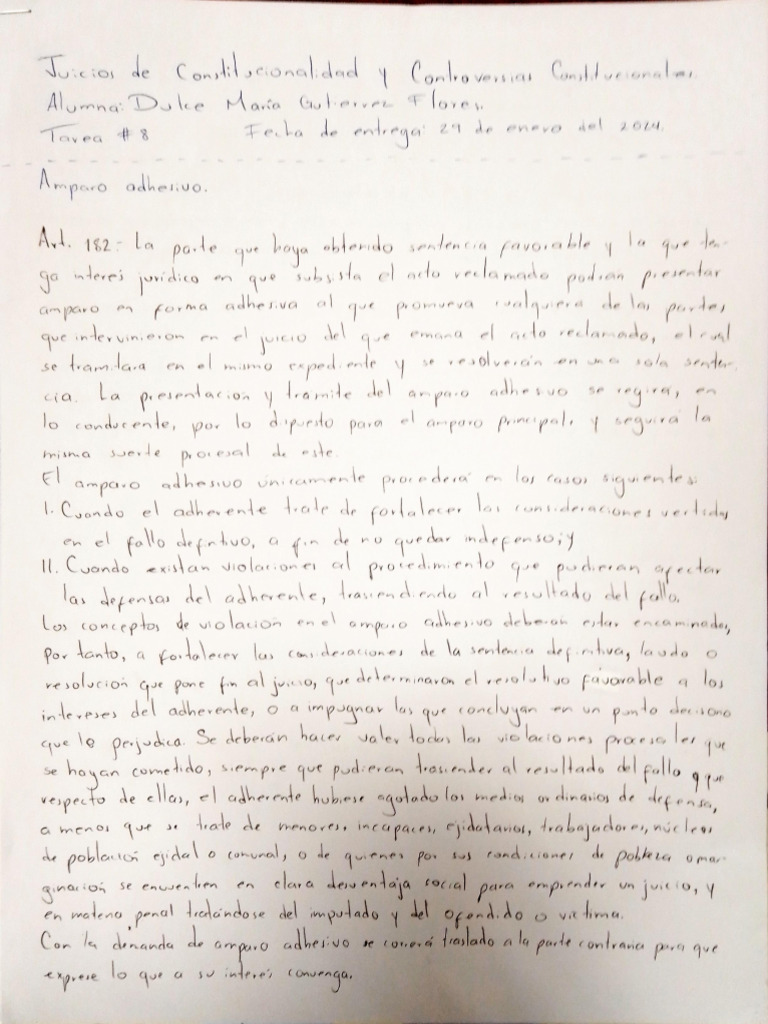 Juicios de Constitucionalidad y Controversias Constitucionales.
Alumna: Dulce María Gutierrez Flores.
Tarea #8 Fecha de entrega: 29 de enero del 2024.
Amparo adhesivo.
Art. 182:- La parte que haya obtenido sentencia favorable y la que ten-
ga interés jurídico en que subsista el acto reclamado podrán presentar
amparo en forma adhesiva al que promueva cualquiera de las partes
que intervinieron en el juicio del que emana el acto reclamado, el cual
se tramitara en el mismo expediente y se resolverán en una sola senten-
cia. La presentacion y tramite del amparo adhesivo se regirá, en
lo conducente, por lo dispuesto para el amparo principal, y seguirá la
misma suerte procesal de este.
El amparo adhesivo únicamente procederá en los casos siguientes:
I. Cuando el adherente trate de fortalecer las consideraciones vertidas
en el fallo defintivo, a fin de no quedar indefenso; y
II. Cuando existan violaciones al procedimiento que pudieran afectar
las defensas del adherente, trasiendiendo al resultado del fallo.
Los conceptos de violación en el amparo adhesivo deberán estar encaminados,
por tanto, a fortalecer las consideraciones de la sentencia definitiva, laudo o
resolución que pone fin al juicio, que determinaron el resolutivo favorable a los
intereses del adherente, o a impugnar las que concluyan en un punto decisorio
que le perjudica. Se deberán hacer valer todas las violaciones procesales que
se hayan cometido, siempre que pudieran trasiender al resultado del fallo y que
respecto de ellas, el adherente hubiese agotado los medios ordinarios de defensa,
a menos que se trate de menores, incapaces, ejidatarios, trabajadores, núcleos
de población ejidal o comunal, o de quienes por sus condiciones de pobreza o mar-
ginación se encuentren en clara desventaja social para emprender un juicio, y
en materia penal tratándose del imputado y del ofendido o victima.
Con la demanda de amparo adhesivo se correrá traslado a la parte contraria para que
exprese lo que a su interés convenga.